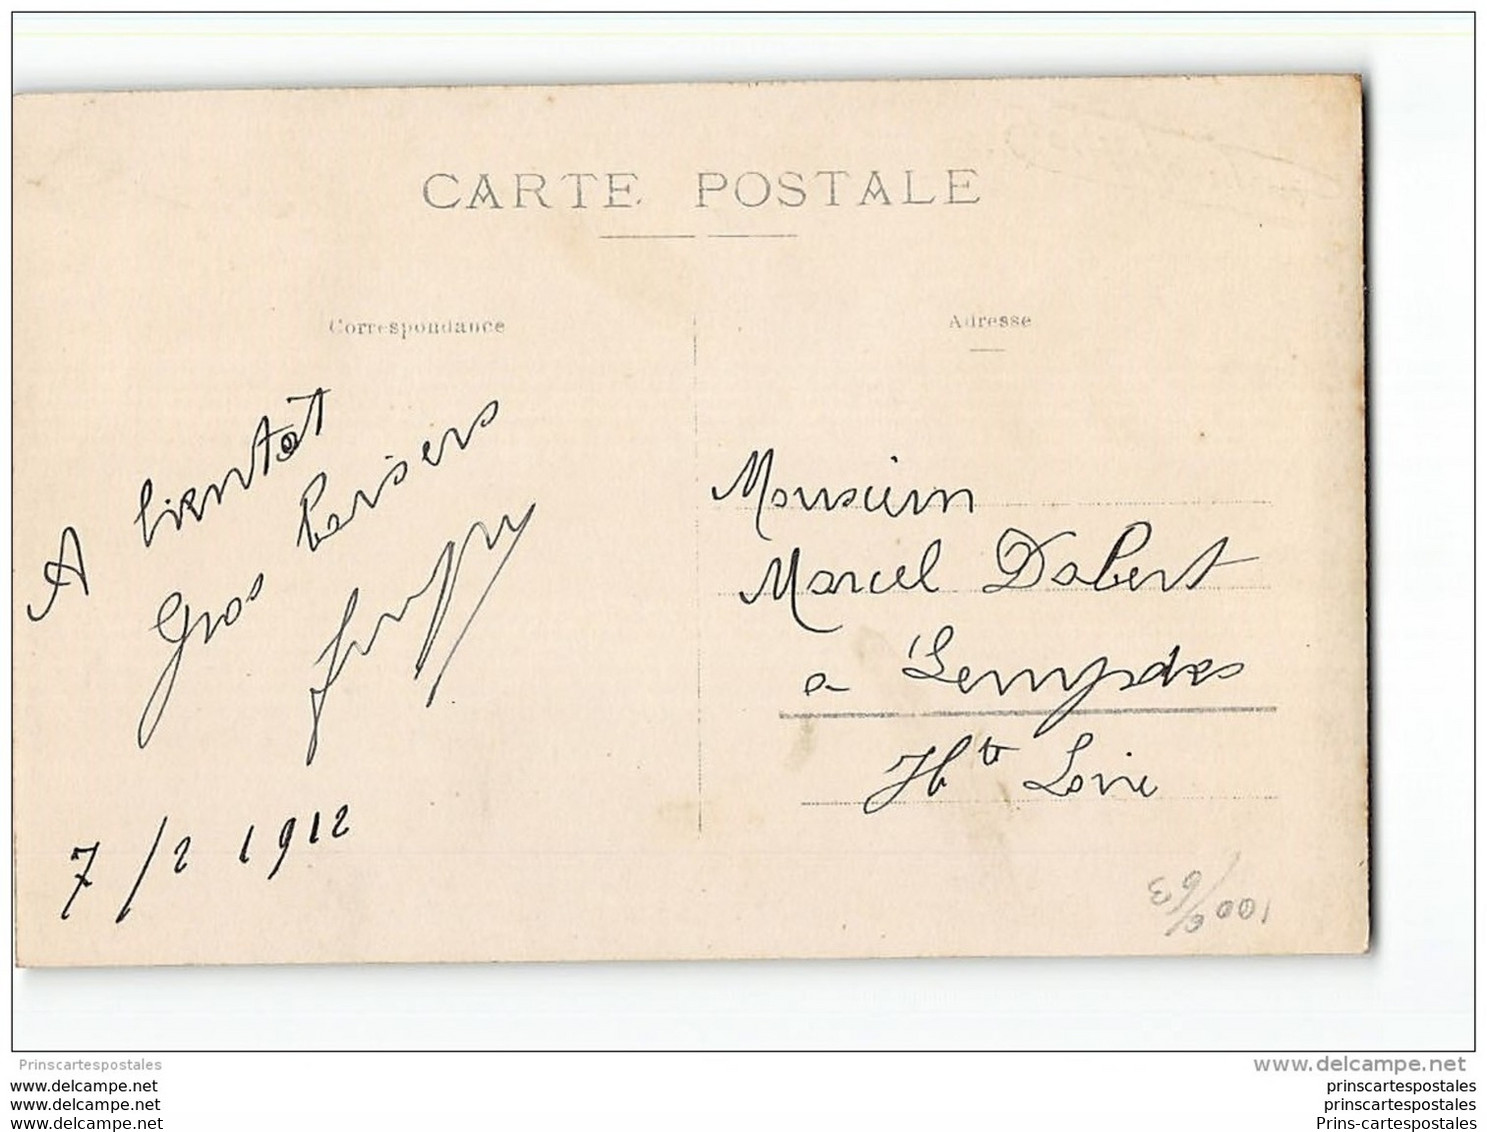 CARTE POSTALE
Correspondance
Adresse
A bientôt
Gros baisers
7/2 1912
Monsieur
Marcel Dabert
a Lempdes
Hte Loire
100
Prinscartespostales
www.delcampe.net
www.delcampe.net
www.delcampe.net
www.delcampe.net
prinscartespostales
prinscartespostales
Prins-cartespostales